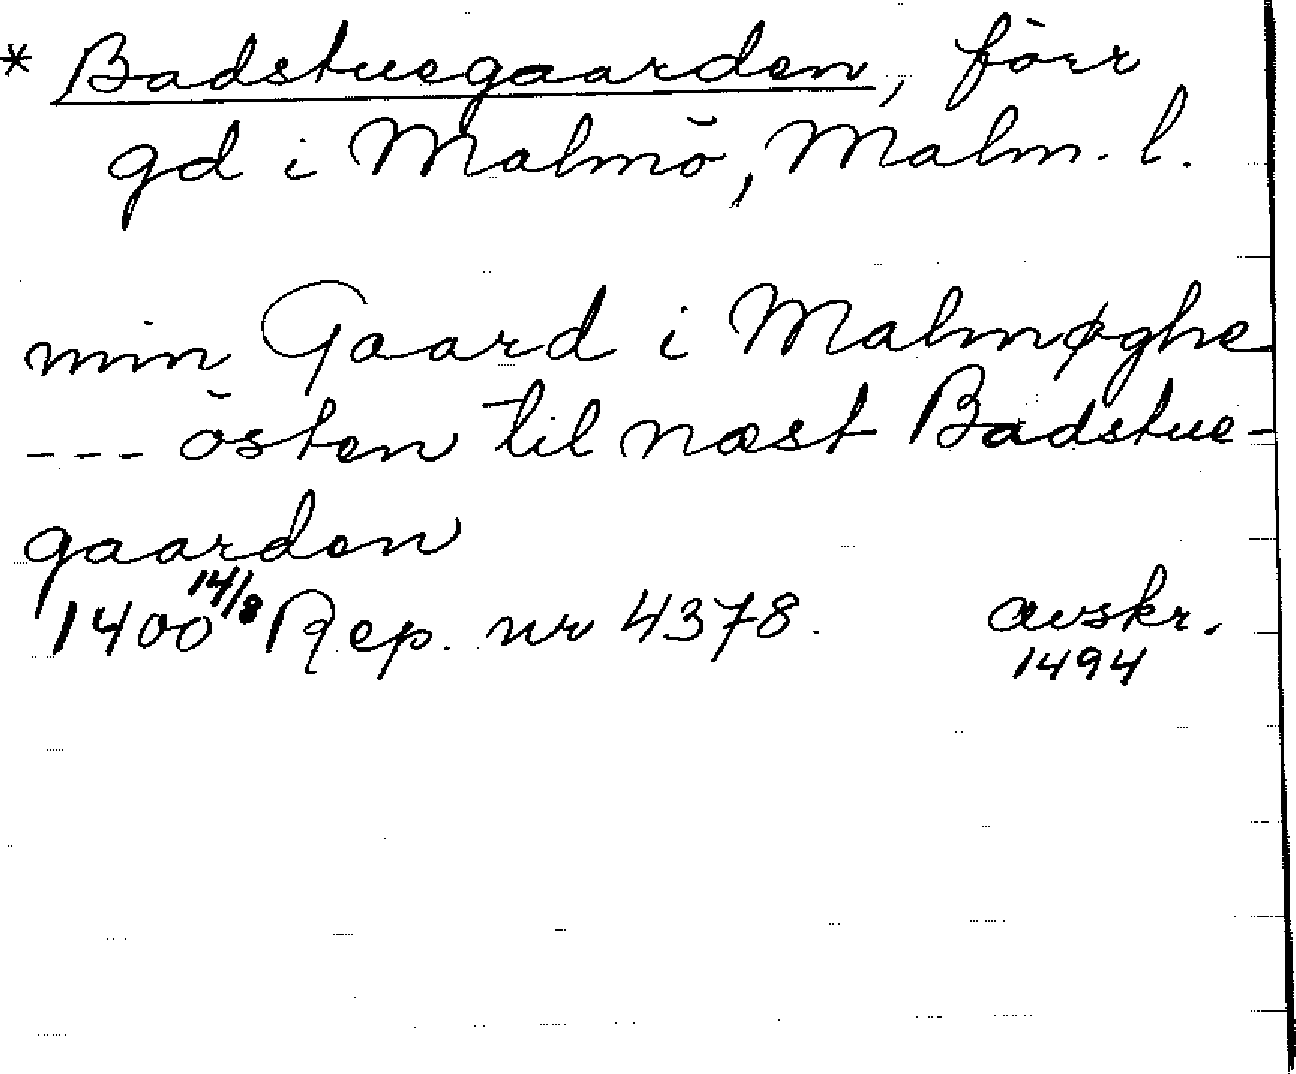 * Badstuegaarden, förr
gd i Malmö, Malm. l.
min Gaard i Malmøghe
--- östen til næst Badstue-
gaarden
1400 14/8 Rep. nr 4378. avskr.
1494